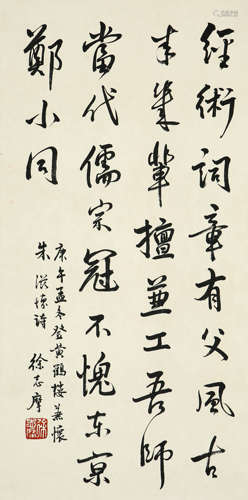 經術詞章有父風古
来幾輩擅兼工吾師
當代儒宗冠不愧東京
鄭小同
庚午孟冬登黄鶴樓兼懷
朱滋懷詩 徐志摩